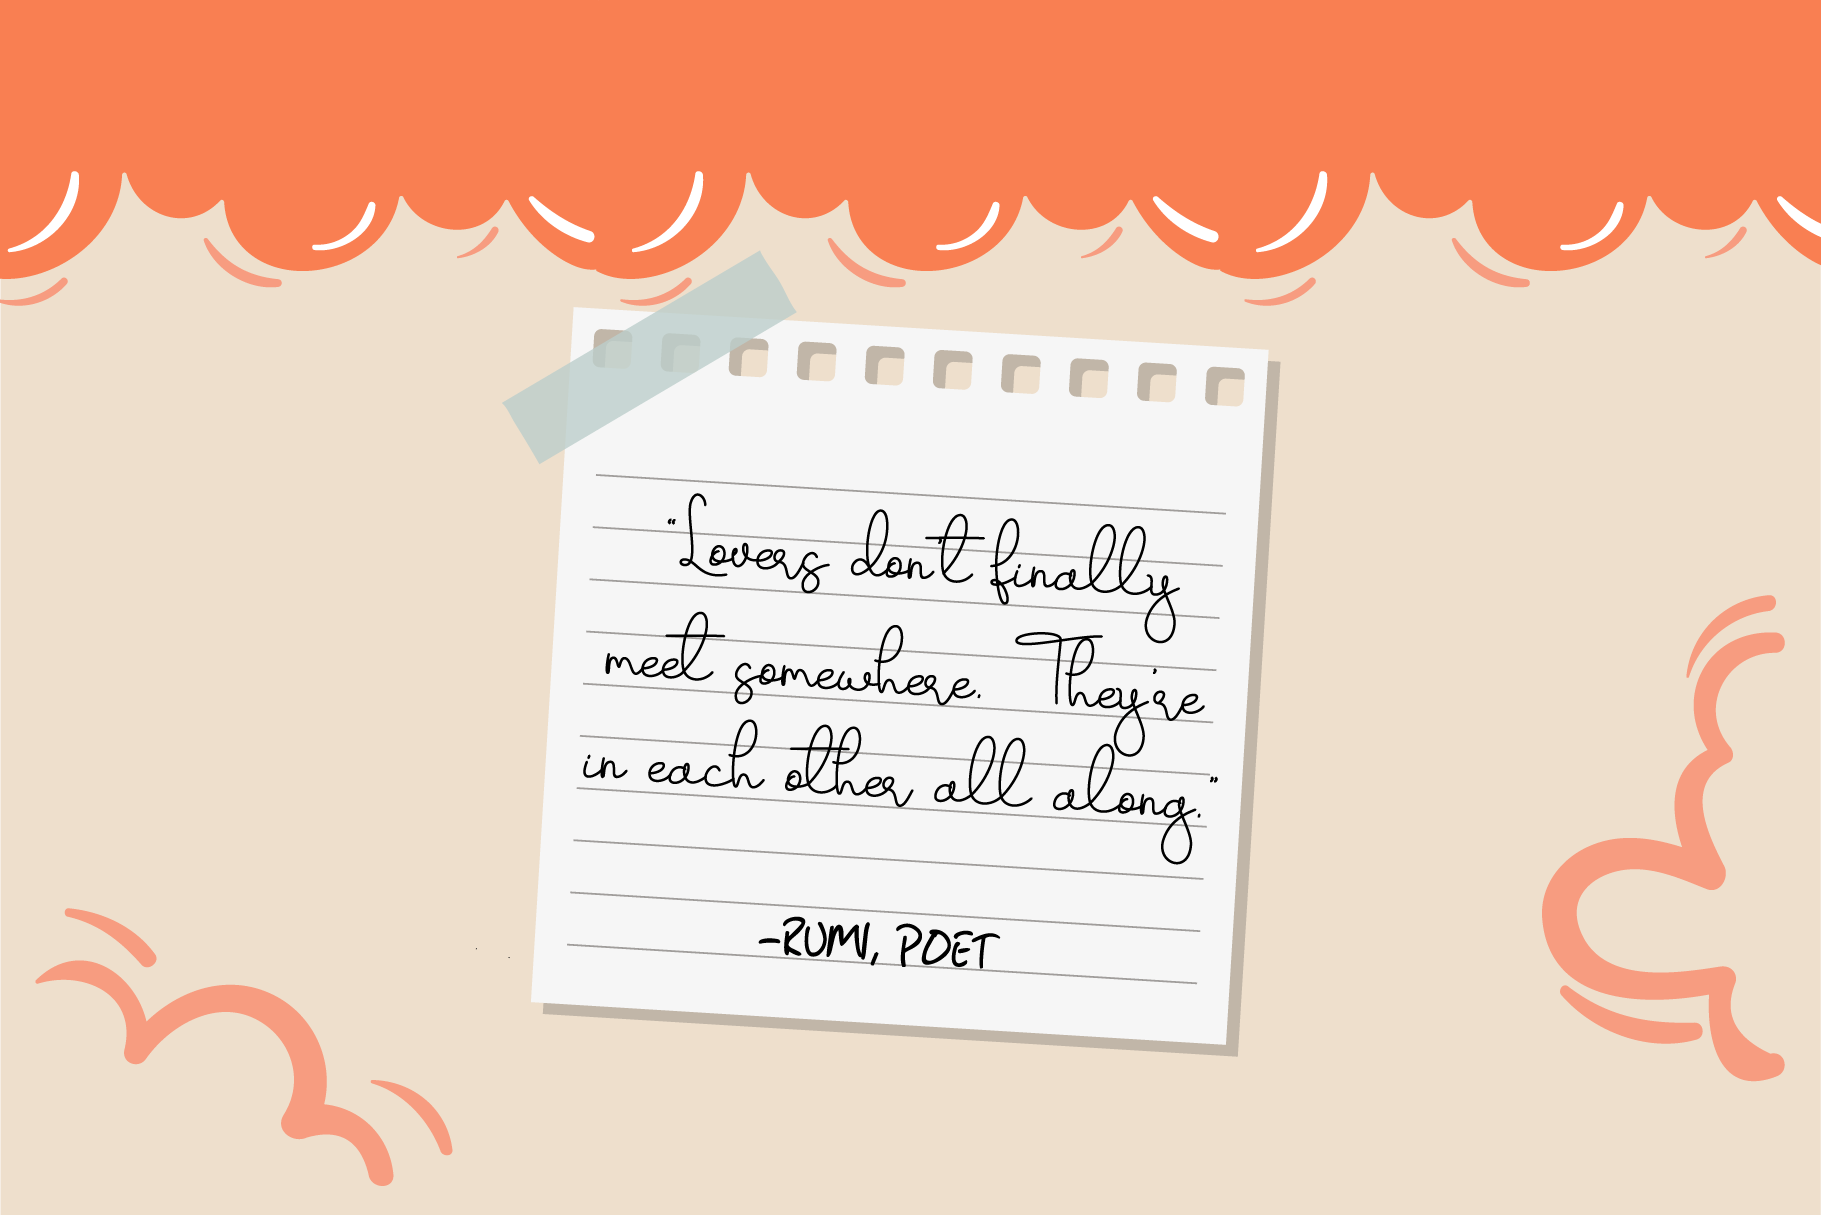 "Lovers don't finally
meet somewhere. They're
in each other all along."
-RUMI, POET